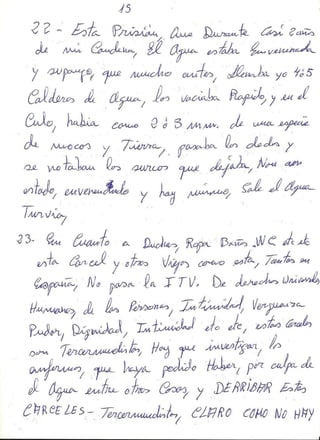 15
22- Esta Prisión, Que Durante Casi 2 años
de mi Condena, El Agua estaba Envenenada
y supongo, que mucho antes, llenaba yo 4 ó 5
Calderos de Agua, los vaciaba Rapido, y en el
Culo, habia como 2 ó 3 m.m. de una especie
de mocos y Tierra, pasaba los dedos y
se notaban los surcos que dejaba, Nos han
estado, envenenando y hoy mismo, Sale el Agua
Turvia,
23- En Cuanto a Duchas, Ropa Baños, WC etc etc
esta Carcel y otras Viejas como esta, Tantas en
España, No pasa la I T V. De derechos Universales
Humanos de las Personas, Intimidad, Verguenza
Pudor, Dignidad, Intimidad etc etc, estas Carceles
son Tercermundistas, Hay que investigar, los
enfermos, que haya podido Haber, por culpa de
el Agua entre otras Cosas, y DERRIBAR Estas
CARCELES - Tercermundistas, CLARO COMO NO HAY